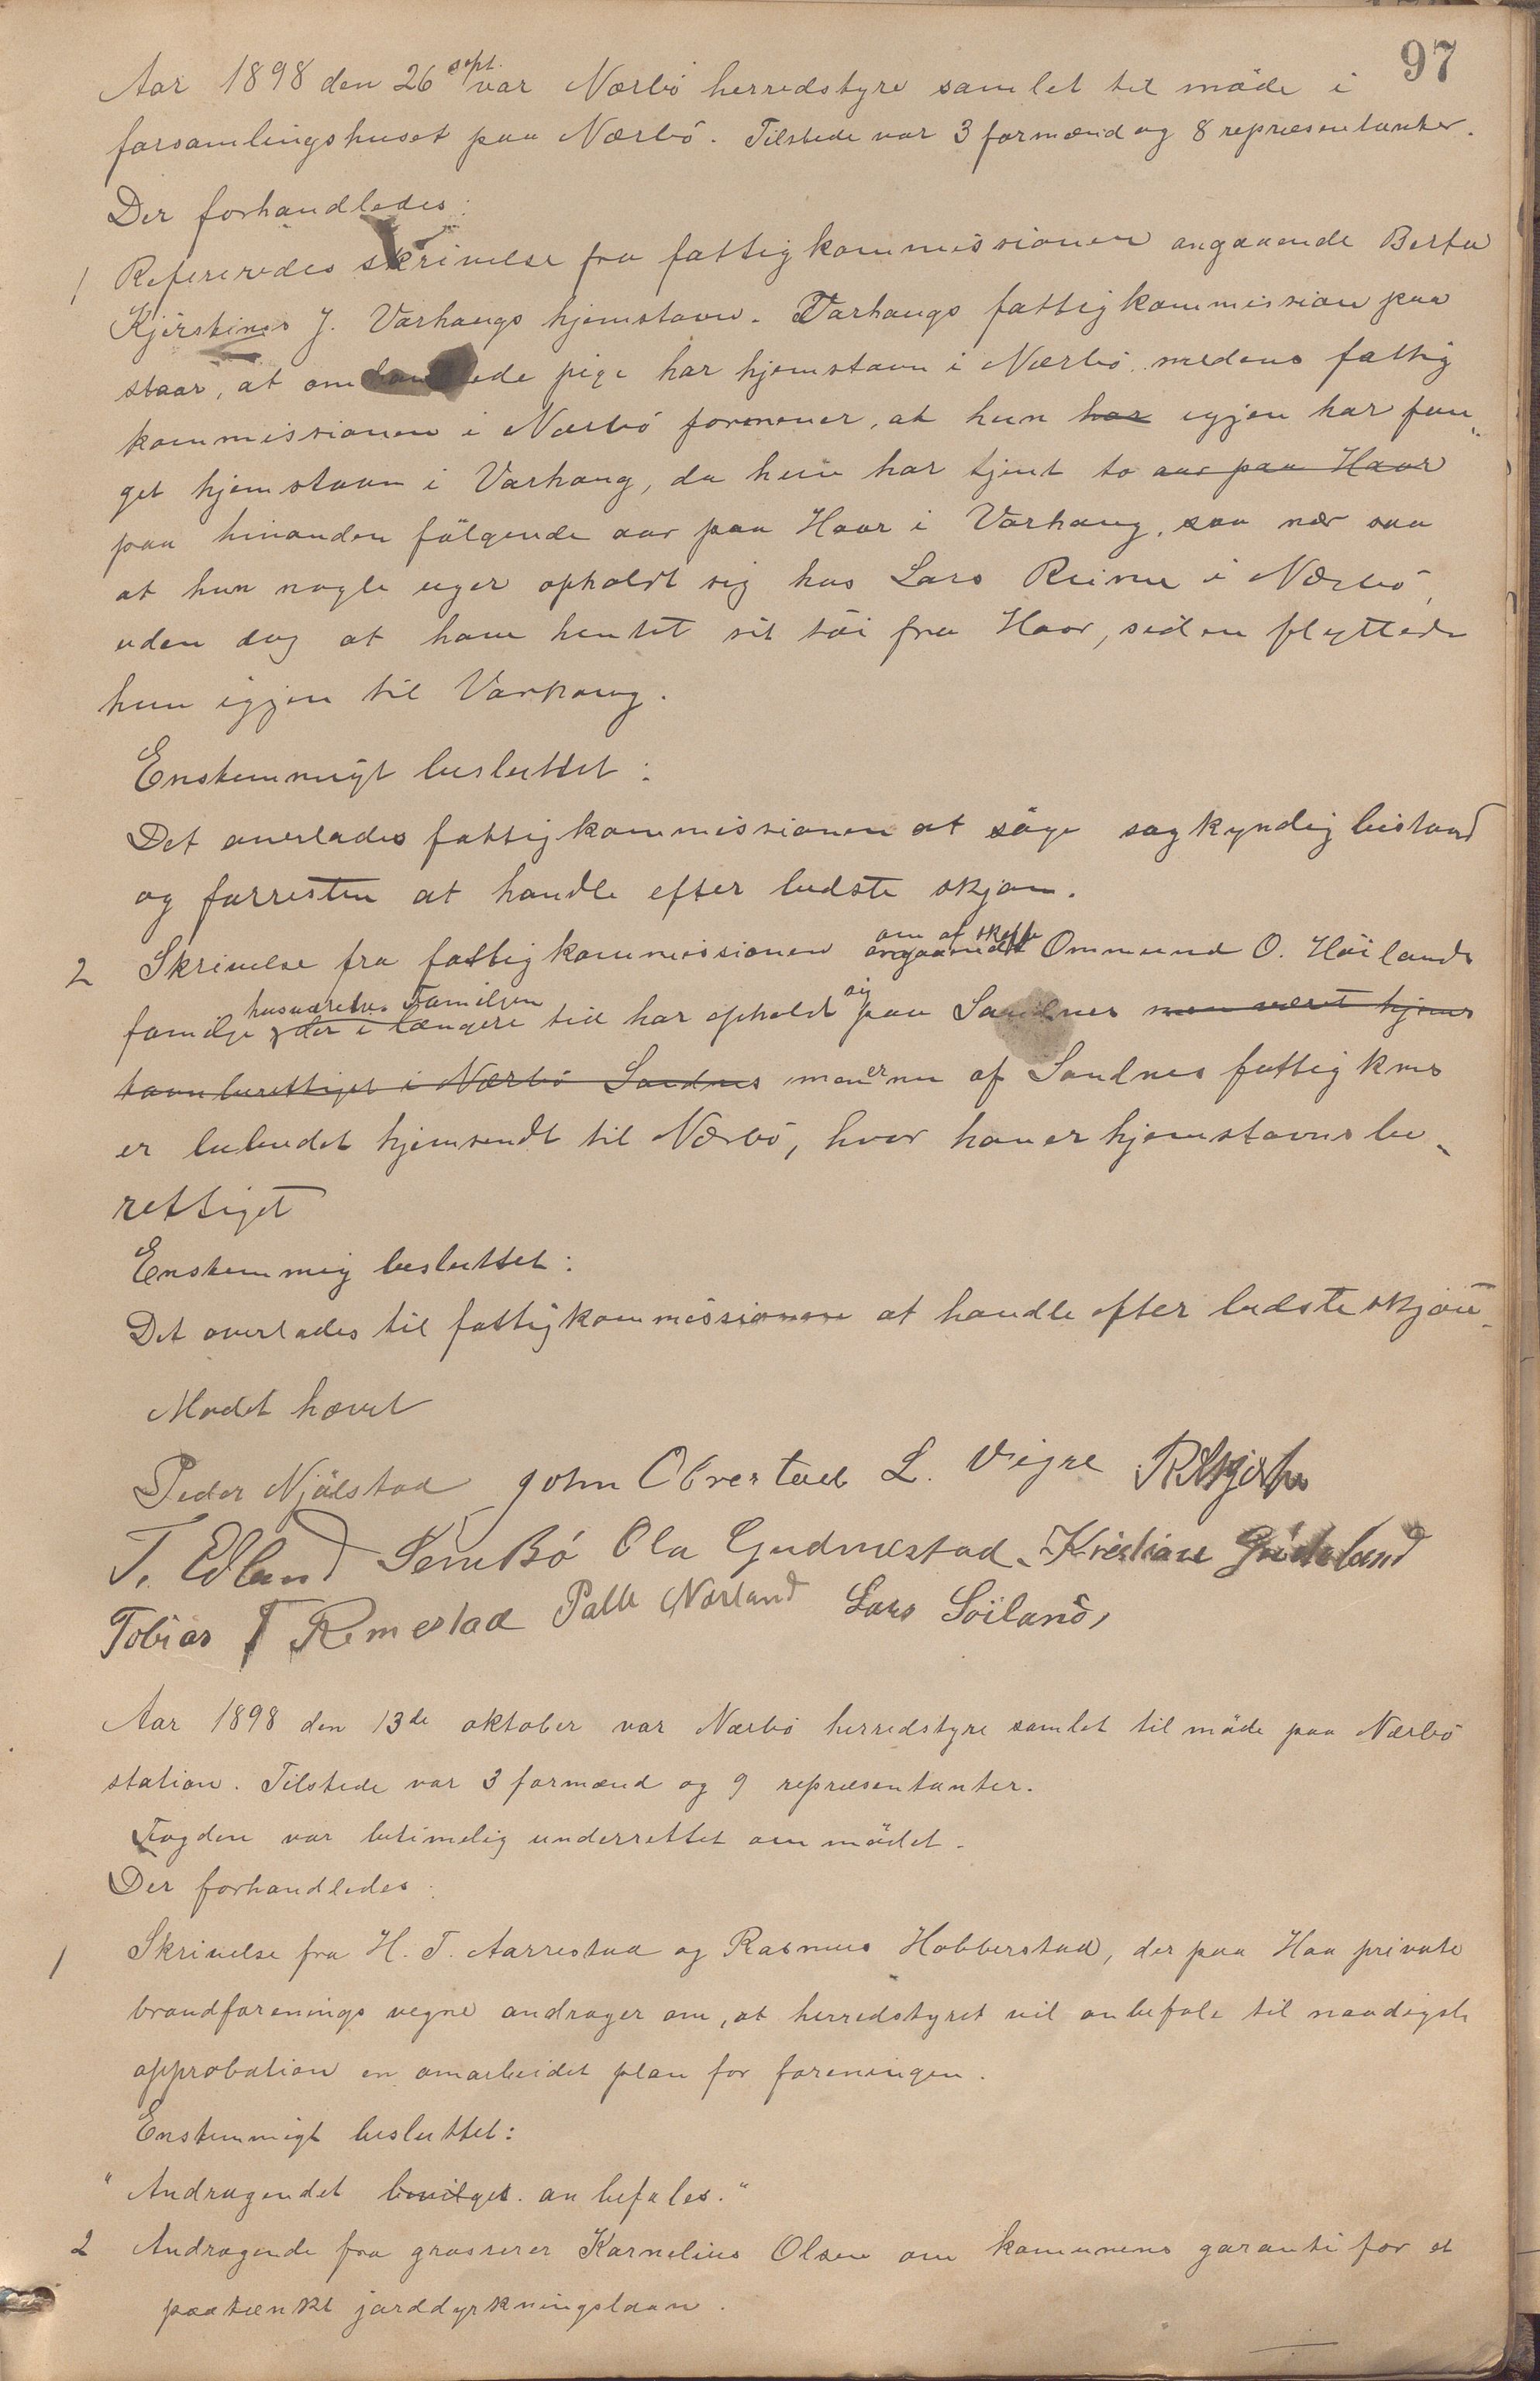 97
Aar 1898 den 26 sept. var Nærbö herredstyre samlet til möde i
forsamlingshuset paa Nærbö. Tilstede var 3 formænd og 8 repræsentanter.
Der forhandledes:
1 Refereredes skrivelse fra fattigkommissionen angaaende Berta
Kjirstines J. Varhaugs hjemstavn. Varhaugs fattigkommission paa
staar, at omhandlede pige har hjemstavn i Nærbö medens fattig
kommissionen i Nærbö formener, at hun har igjen har fun„
get hjemstavn i Varhaug, da hun har tjent to aar paa Haar
paa hinanden fölgende aar paa Haar i Varhaug, saa nær saa
at hun nogle uger opholdt sig hos Lars Reime i Nærbö,
uden dog at have hentet sit töi fra Haar, siden flyttede
hun igjen til Varhaug.
Enstemmigt besluttet:
Det overlades fattigkommissionen at söge sagkyndig bistand
og forresten at handle efter bedste skjön.
2 Skrivelse fra fattigkommissionen angaaende om at skaffe Ommund O. Höilands
familje husværelse. Familien der i længere tid har opholdt sig paa Sandnes men været hjems
tavnberettiget i Nærbö Sandnes men er nu af Sandnes fattigkms
er bebudet hjemsendt til Nærbö, hvor han er hjemstavnsbe-
rettiget
Enstemmig besluttet:
Det overlades til fattigkommissionen at handle efter bedste skjön.
Mödet hævet
Peder Njålstad John Obrestad L. Vigre
T. Edland Sem Bö Ola Gudmestad Kristian Grödeland
Tobias T Remestad Palle Nærland Lars Söiland,
Aar 1898 den 13de oktober var Nærbö herredstyre samlet til möde paa Nærbö
station. Tilstede var 3 formænd og 9 repræsentanter.
Fogden var betimelig underrettet om mödet.
Der forhandledes:
1 Skrivelse fra H. T. Aarrestad og Rasmus Hobberstad, der paa Haa private
brandforenings vegne andrager om, at herredstyret vil anbefale til naadigst
approbation en omarbeidet plan for foreningen.
Enstemmigt besluttet:
"Andragendet bevilges. anbefales."
2 Andragende fra grosserer Kornelius Olsen om kommunens garanti for et
paatænkt jorddyrkningslaan.